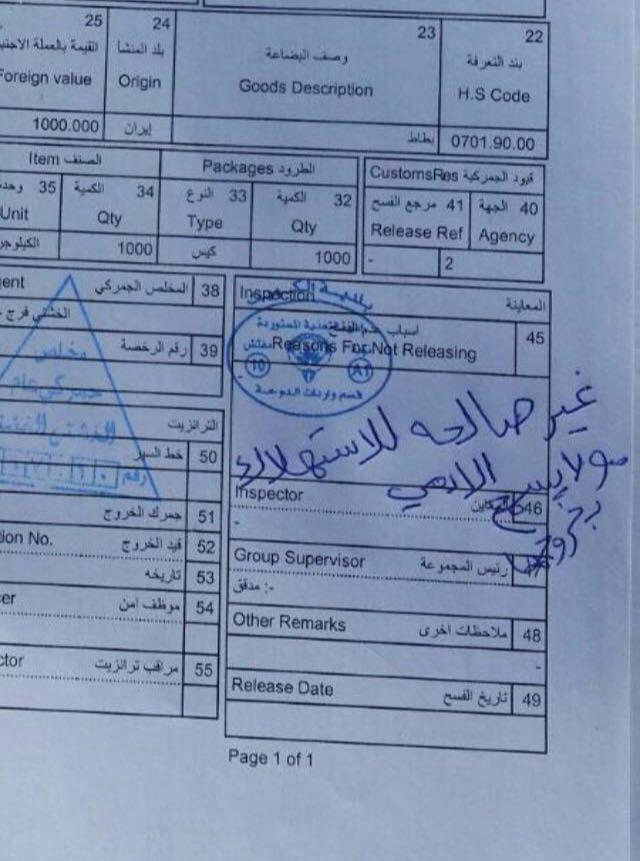 25
القيمة بالعملة الاجنبية
Foreign value
24
بلد المنشأ
Origin
23
وصف البضاعة
Goods Description
22
بند التعرفة
H.S Code
1000.000
إيران
بطاط
0701.90.00
الصنف Item
الطرود Packages
قيود الجمركية CustomsRes
35 وحدة
Unit
34 الكمية
Qty
33 النوع
Type
32 الكمية
Qty
41 مرجع الفسح
Release Ref
40 الجهة
Agency
1000
كيس
1000
-
2
38 المخلص الجمركي
39 رقم الرخصة
مخلص
جمركي عام
رقم
المعاينة
Inspection
45
Reasons For Not Releasing
10
A1
قسم واردات الدوحة
غير صالحه للاستهلاك
الادمي
الترانزيت
50 خط السير
51 جمرك الخروج
52 قيد الخروج
53 تاريخه
54 موظف امن
55 مراقب ترانزيت
Inspector
46
-
Group Supervisor
رئيس المجموعة
مدقق :-
Other Remarks
ملاحظات اخرى 48
-
Release Date
تاريخ الفسح 49
Page 1 of 1